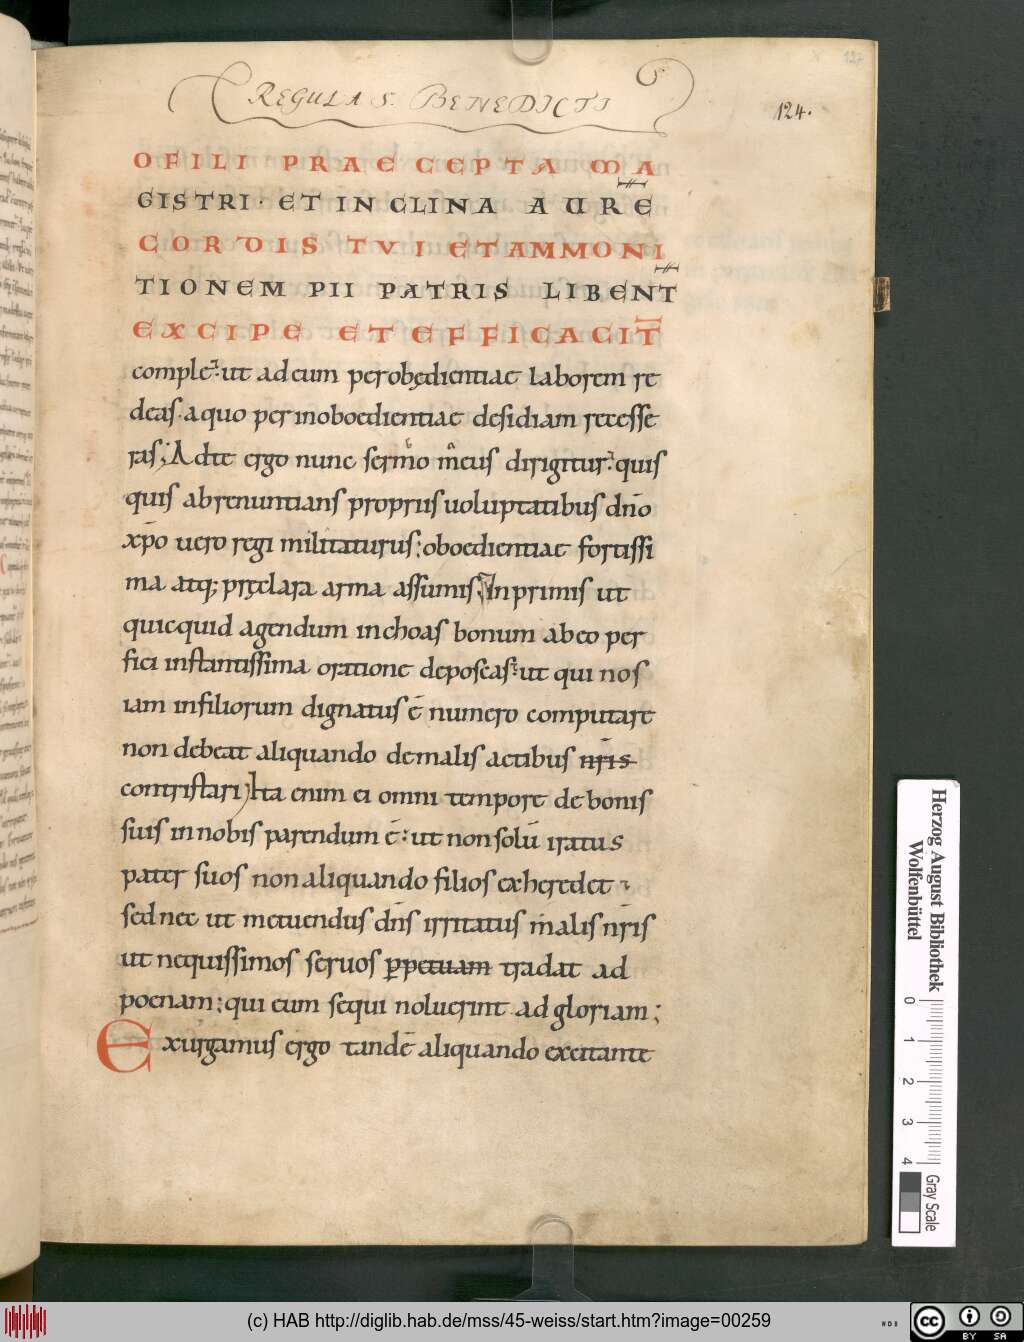 REGULA S. BENEDICTI
124.
127
O FILI PRAECEPTA MA
GISTRI · ET INCLINA AURE
CORDIS TVI ET AMMONI
TIONEM PII PATRIS LIBENT
EXCIPE ET EFFICACIT̅
comple· ut ad eum per obędientiae laborem re
deas· a quo per inoboedientiae desidiam recesse
ras; Ad te ergo nunc sermo meus dirigitur· quis
quis abrenuntians propriis uoluptatibus dn̅o
xp̅o uero regi militaturus; oboedientiae fortissi
ma atq; pręclara arma assumis; In primis ut
quicquid agendum inchoas bonum ab eo per
fici instantissima oratione deposcas; ut qui nos
iam in filiorum dignatus ē numero computare
non debeat aliquando de malis actibus nr̅is
contristari; Ita enim ei omni tempore de bonis
suis in nobis parendum ē: ut non solū iratus
pater suos non aliquando filios exheredet;
sed nec ut metuendus dn̅s irritatus malis nr̅is
ut nequissimos seruos ꝑpetuam tradat ad
poenam; qui eum sequi noluerint ad gloriam;
Exurgamus ergo tandē aliquando excitante
Herzog August Bibliothek
Wolfenbüttel
0 1 2 3 4
Gray Scale
(c) HAB http://diglib.hab.de/mss/45-weiss/start.htm?image=00259
WDB
cc BY SA